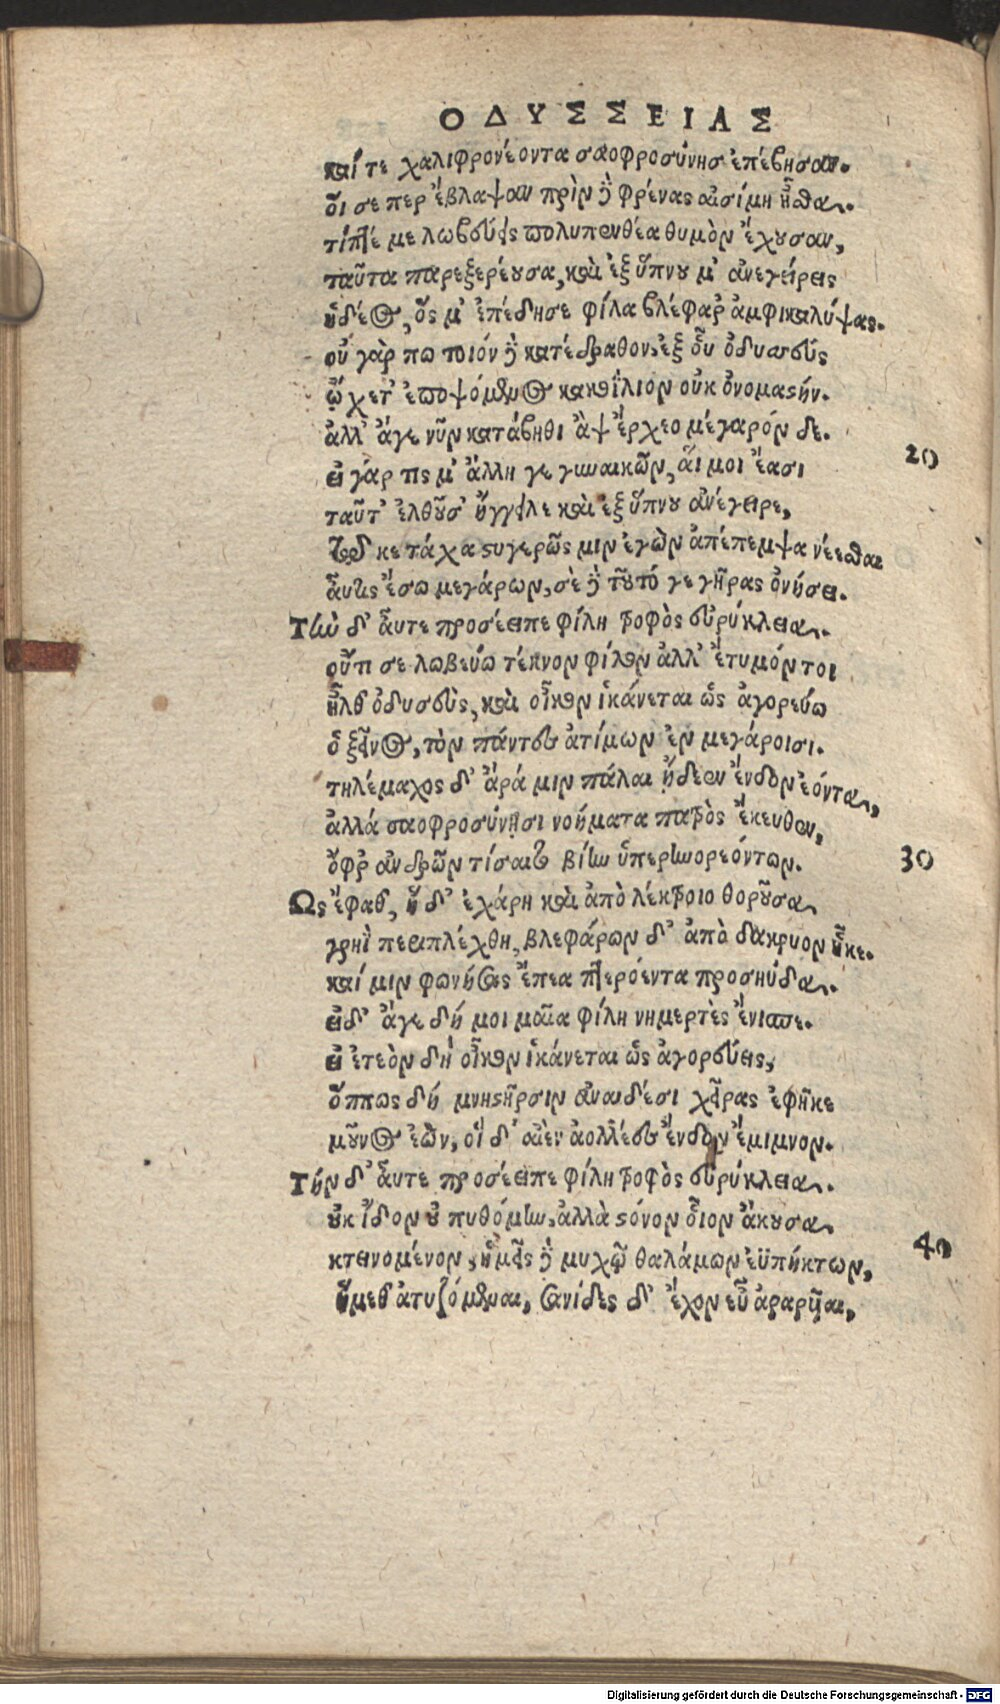 ΟΔΥΣΣΕΙΑΣ
καί τε χαλιφρονέοντα σαοφροσύνησ ἐπέβησαν.
οἵ σε περ ἔβλαψαν πρὶν δὲ φρένας αἰσίμη ἦσθα.
τίπτέ με λωβεύεις πολυπενθέα θυμὸν ἔχουσαν,
ταῦτα παρεξερέουσα, καὶ ἐξ ὕπνου μ' ἀνεγείρεις
ἡδέος, ὅς μ' ἐπέδησε φίλα βλέφαρ' ἀμφικαλύψας.
οὐ γάρ πω τοιόν δὲ κατέδραθον, ἐξ οὗ ὀδυσσεύς
ᾤχετ' ἐποψόμενος κακοΐλιον οὐκ ὀνομαστήν.
ἀλλ' ἄγε νῦν κατάβηθι ἂψ ἔρχεο μέγαρόν δε.
20
εἰ γάρ τις μ' ἄλλη γε γυναικῶν, αἵ μοι ἔασι
ταῦτ' ἐλθοῦσ' ἤγγειλε καὶ ἐξ ὕπνου ἀνέγειρε,
τῷ κε τάχα στυγερῶς μιν ἐγὼν ἀπέπεμψα νέεσθαι
αὖτις ἔσω μεγάρων, σὲ δὲ τοῦτό γε γῆρας ὀνήσει.
Τὴν δ' αὖτε προσέειπε φίλη τροφὸς εὐρύκλεια.
οὔτι σε λωβεύω τέκνον φίλον ἀλλ' ἔτυμόν τοι
ἦλθ' ὀδυσεὺς, καὶ οἶκον ἱκάνεται ὡς ἀγορεύω
ὁ ξεῖνος, τὸν πάντες ἀτίμων ἐν μεγάροισι.
τηλέμαχος δ' ἄρά μιν πάλαι ᾔδεεν ἔνδον ἐόντα,
ἀλλά σαοφροσύνῃσι νοήματα πατρὸς ἔκευθεν,
30
ὄφρ' ἀνδρῶν τίσαιτο βίην ὑπερηνορεόντων.
Ως ἔφαθ', ἡ δ' ἐχάρη καὶ ἀπὸ λέκτροιο θοροῦσα
γρηῒ περιπλέχθη, βλεφάρων δ' ἀπὸ δάκρυον ἧκε.
καί μιν φωνήσας ἔπεα πτερόεντα προσηύδα.
εἰ δ' ἄγε δή μοι μαῖα φίλη νημερτὲς ἔνισπε.
εἰ ἐτεὸν δὴ οἶκον ἱκάνεται ὡς ἀγορεύεις,
ὅππως δή μνηστῆρσιν ἀναιδέσι χεῖρας ἐφῆκε
μοῦνος ἐὼν, οἱ δ' αἰὲν ἀολλέες ἔνδον ἔμιμνον.
Τήν δ' αὖτε προσέειπε φίλη τροφὸς εὐρύκλεια.
οὐκ ἴδον οὐ πυθόμην, ἀλλὰ στόνον οἶον ἄκουσα
40
κτεινομένων, ἡμεῖς δὲ μυχῷ θαλάμων ἐϋπήκτων,
ἥμεθ' ἀτυζόμεναι, σανίδες δ' ἔχον εὖ ἀραρῦιαι,
Digitalisierung gefördert durch die Deutsche Forschungsgemeinschaft - DFG